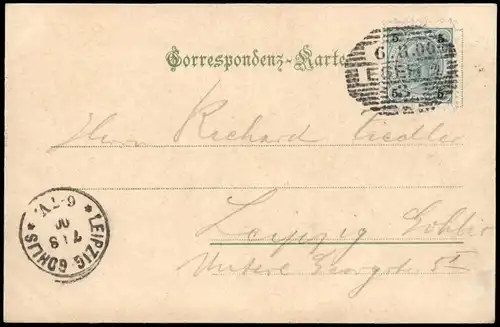 Correspondenz-Karte
5 5
EGER 2
5 5
Herrn Richard Fiedler
Leipzig Gohlis
Untere Georgstr. 5 I
LEIPZIG GOHLIS
* 6-7 V. *
7 8
00